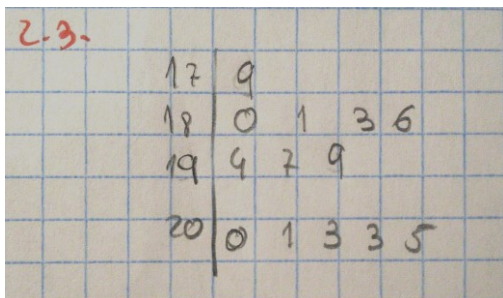 2.3.
17 | 9
18 | 0 1 3 6
19 | 4 7 9
20 | 0 1 3 3 5